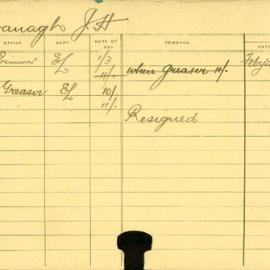 vanagh J H
OFFICE DEPT. DATE OF PAY REMARKS DATE
Trimmer EL 1/3 when Greaser 11/- Feby
11/-
Greaser EL 10/-
11/- Resigned